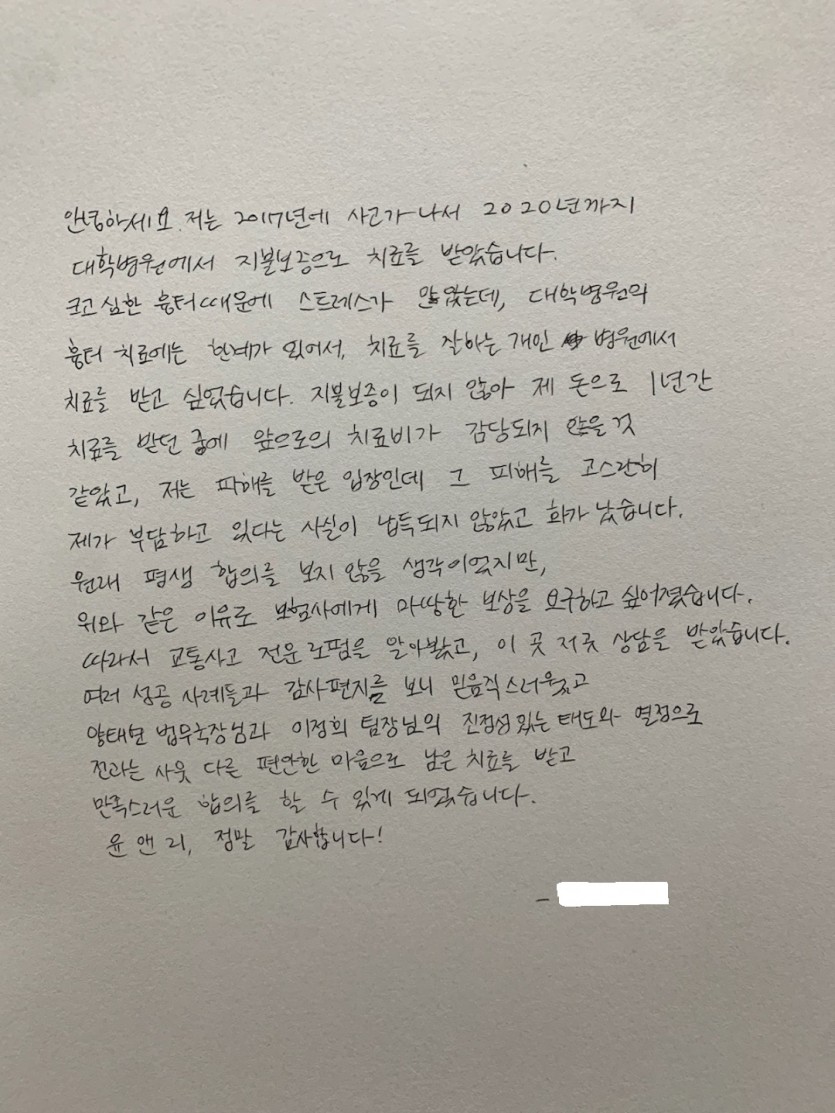 안녕하세요. 저는 2017년에 사고가 나서 2020년까지
대학병원에서 지불보증으로 치료를 받았습니다.
크고 심한 흉터 때문에 스트레스가 많았는데, 대학병원의
흉터 치료에는 한계가 있어서, 치료를 잘하는 개인 병원에서
치료를 받고 싶었습니다. 지불보증이 되지 않아 제 돈으로 1년간
치료를 받던 중에 앞으로의 치료비가 감당되지 않을 것
같았고, 저는 피해를 받은 입장인데 그 피해를 고스란히
제가 부담하고 있다는 사실이 납득되지 않았고 화가 났습니다.
원래 평생 합의를 보지 않을 생각이었지만,
위와 같은 이유로 보험사에게 마땅한 보상을 요구하고 싶어졌습니다.
따라서 교통사고 전문 로펌을 알아봤고, 이 곳 저곳 상담을 받았습니다.
여러 성공 사례들과 감사편지를 보니 믿음직스러웠고
양태현 법무국장님과 이정희 팀장님의 진정성 있는 태도와 열정으로
전과는 사뭇 다른 편안한 마음으로 남은 치료를 받고
만족스러운 합의를 할 수 있게 되었습니다.
윤앤리, 정말 감사합니다!
-